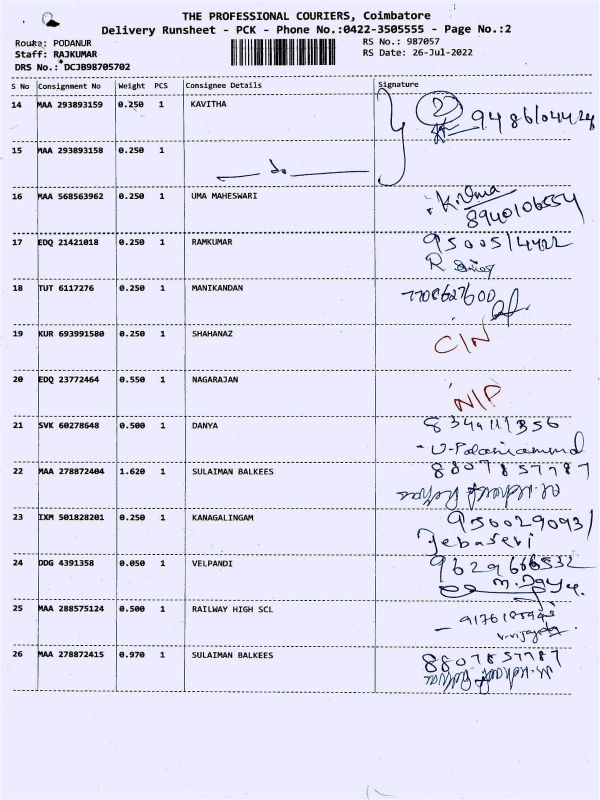 2
THE PROFESSIONAL COURIERS, Coimbatore
Delivery Runsheet - PCK - Phone No.:0422-3505555 - Page No.:2
Route: PODANUR RS No.: 987057
Staff: RAJKUMAR RS Date: 26-Jul-2022
DRS No.: DCJB98705702
S No Consignment No Weight PCS Consignee Details Signature
14 MAA 293893159 0.250 1 KAVITHA 2
15 MAA 293893158 0.250 1 do
16 MAA 568563962 0.250 1 UMA MAHESWARI K.Uma
8940106554
17 EDQ 21421018 0.250 1 RAMKUMAR 9500514422
R
18 TUT 6117276 0.250 1 MANIKANDAN
19 KUR 693991580 0.250 1 SHAHANAZ C/N
20 EDQ 23772464 0.550 1 NAGARAJAN N/P
21 SVK 60278648 0.500 1 DANYA
22 MAA 278872404 1.620 1 SULAIMAN BALKEES 8807857787
23 IXM 501828201 0.250 1 KANAGALINGAM 9500290931
Jebaseri
24 DDG 4391358 0.050 1 VELPANDI 9629666532
25 MAA 288575124 0.500 1 RAILWAY HIGH SCL
26 MAA 278872415 0.970 1 SULAIMAN BALKEES 8807857787